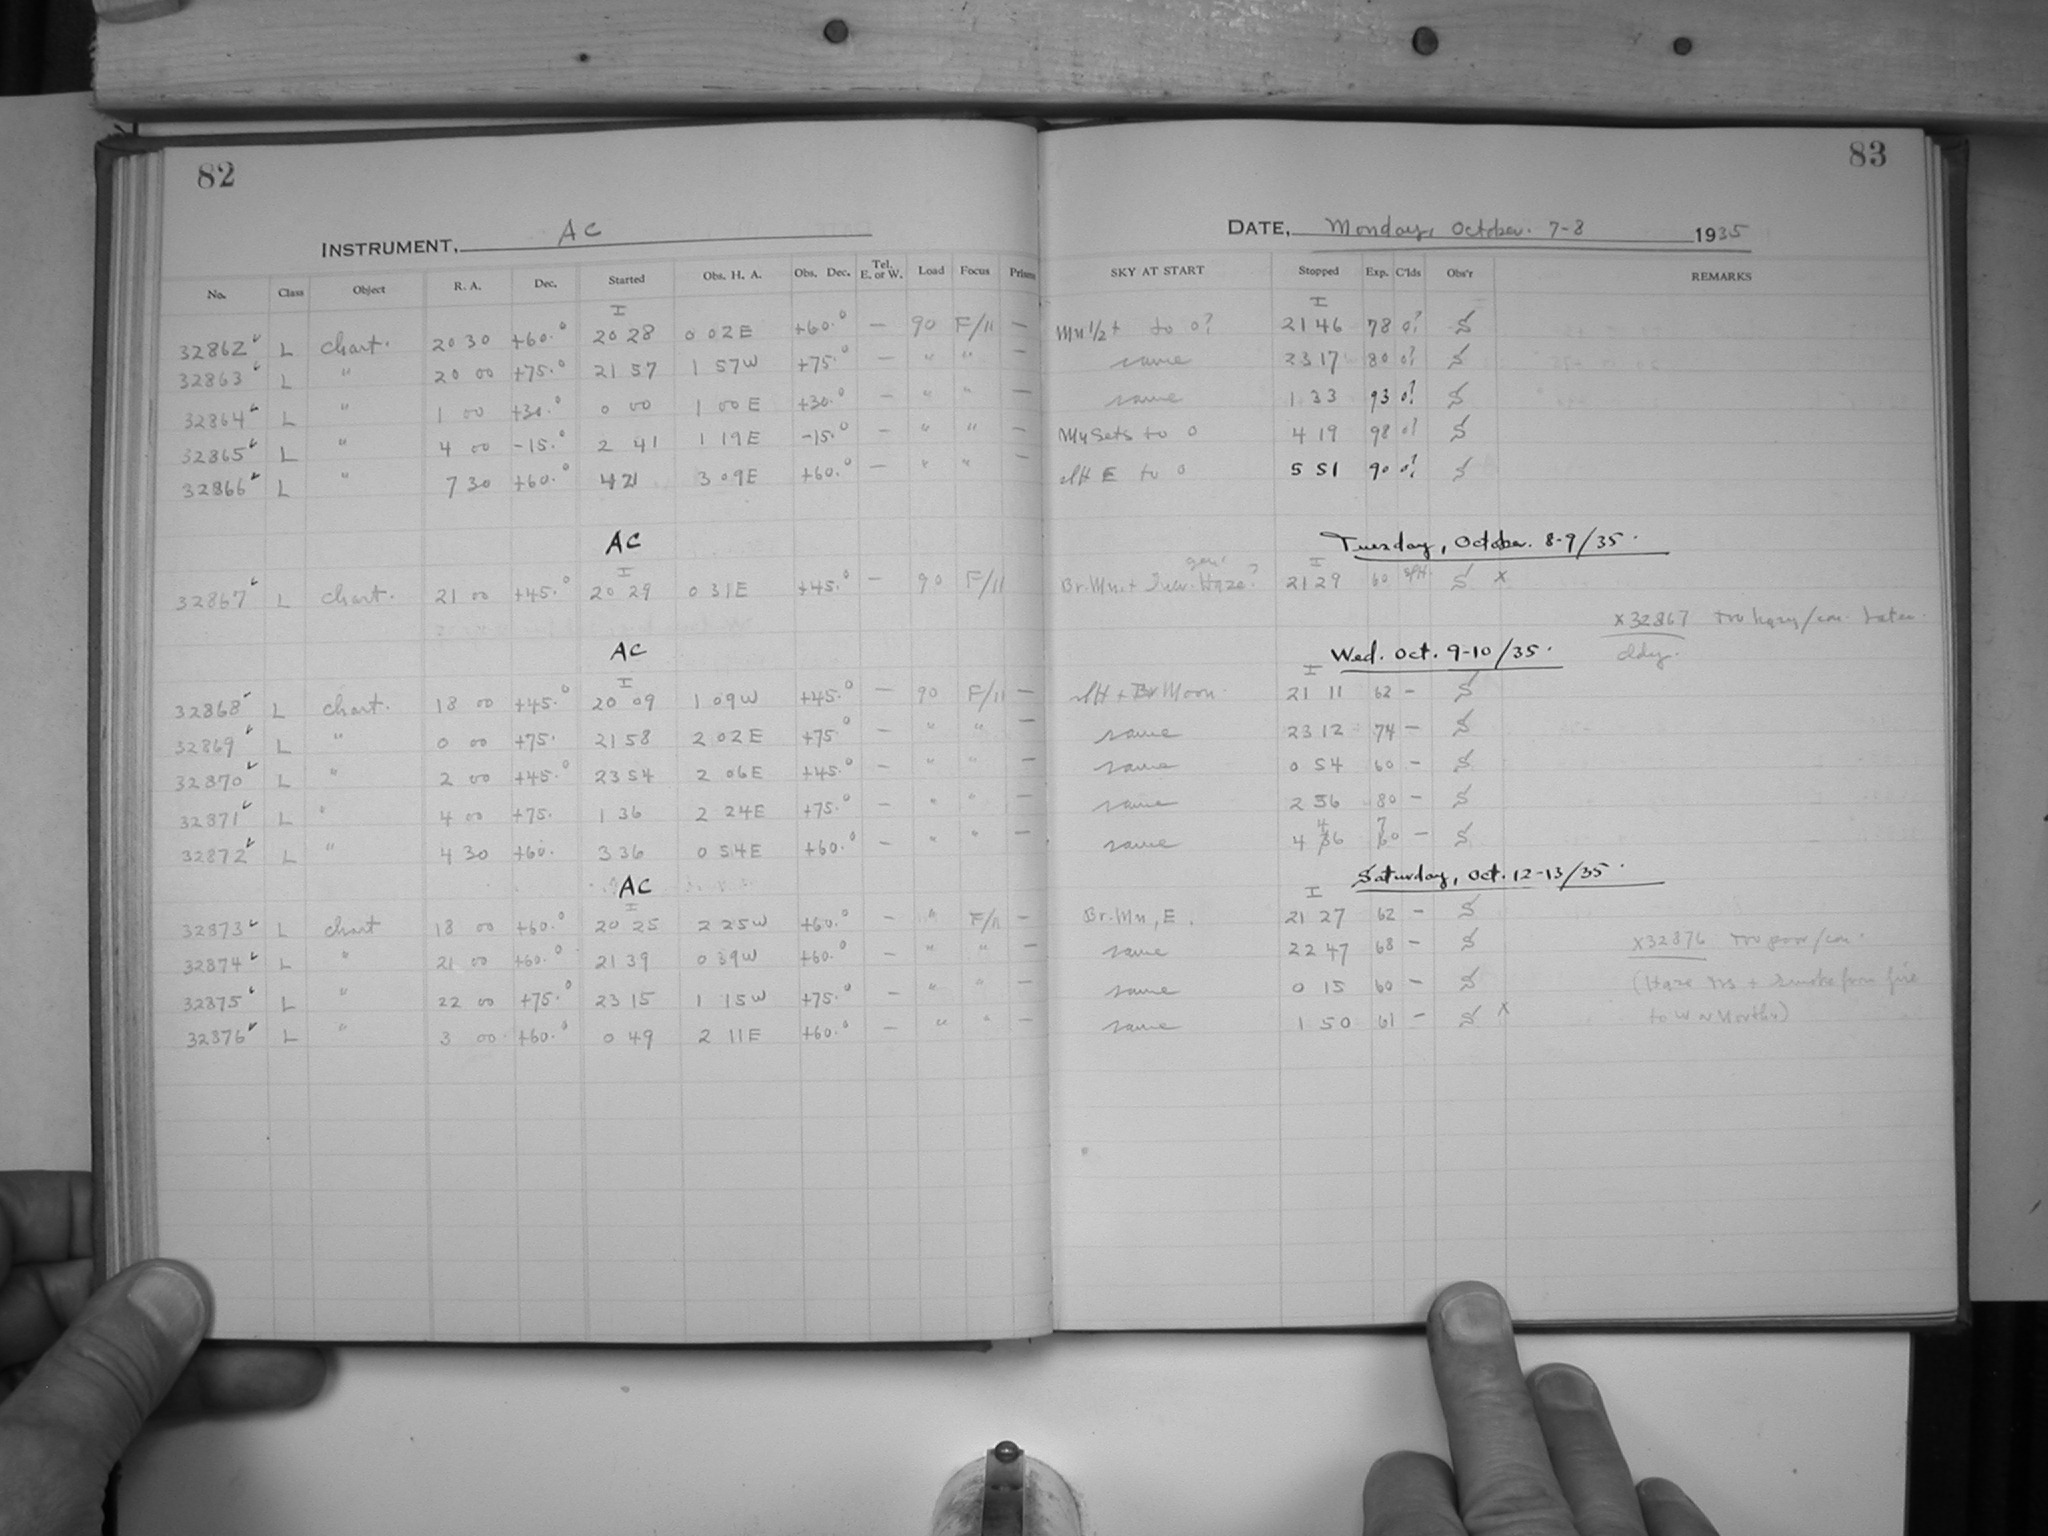 82
83
INSTRUMENT, AC
DATE, Monday, October. 7-8 1935
No. Class Object R. A. Dec. Started Obs. H. A. Obs. Dec. Tel. E. or W. Load Focus Prism SKY AT START Stopped Exp. C'lds Obs'r REMARKS
I I
32862 L chart. 20 30 +60.° 20 28 0 02E +60.° — 90 F/11 — Mn 1/2 + to 0? 21 46 78 0? S
32863 L " 20 00 +75.° 21 57 1 57W +75.° — " " — same 23 17 80 0? S
32864 L " 1 00 +30.° 0 00 1 00E +30.° — " " — same 1 33 93 0? S
32865 L " 4 00 -15.° 2 41 1 19E -15.° — " " — Mn Sets to 0 4 19 98 0? S
32866 L " 7 30 +60.° 4 21 3 09E +60.° — " " E to 0 5 51 90 0? S
AC Tuesday, October. 8-9/35.
I I
32867 L chart. 21 00 +45.° 20 29 0 31E +45.° — 90 F/11 Br. Mn. + Haze? 21 29 60 S x
x32867 Too hazy/
AC Wed. Oct. 9-10/35. cldy.
I I
32868 L chart. 18 00 +45.° 20 09 1 09W +45.° — 90 F/11 — + Br Moon. 21 11 62 — S
32869 L " 0 00 +75. 21 58 2 02E +75.° — " " — same 23 12 74 — S
32870 L " 2 00 +45.° 23 54 2 06E +45.° — " " — same 0 54 60 — S
32871 L " 4 00 +75. 1 36 2 24E +75.° — " " — same 2 56 80 — S
32872 L " 4 30 +60. 3 36 0 54E +60.° — " " — same 4 46 70 — S
AC Saturday, Oct. 12-13/35.
I I
32873 L chart 18 00 +60.° 20 25 2 25W +60.° — " F/11 — Br. Mn, E. 21 27 62 — S
32874 L " 21 00 +60.° 21 39 0 39W +60.° — " " — same 22 47 68 — S x32876 Too poor/
32875 L " 22 00 +75.° 23 15 1 15W +75.° — " " — same 0 15 60 — S (Haze + smoke from fire
32876 L " 3 00 +60.° 0 49 2 11E +60.° — " " — same 1 50 61 — S x to W